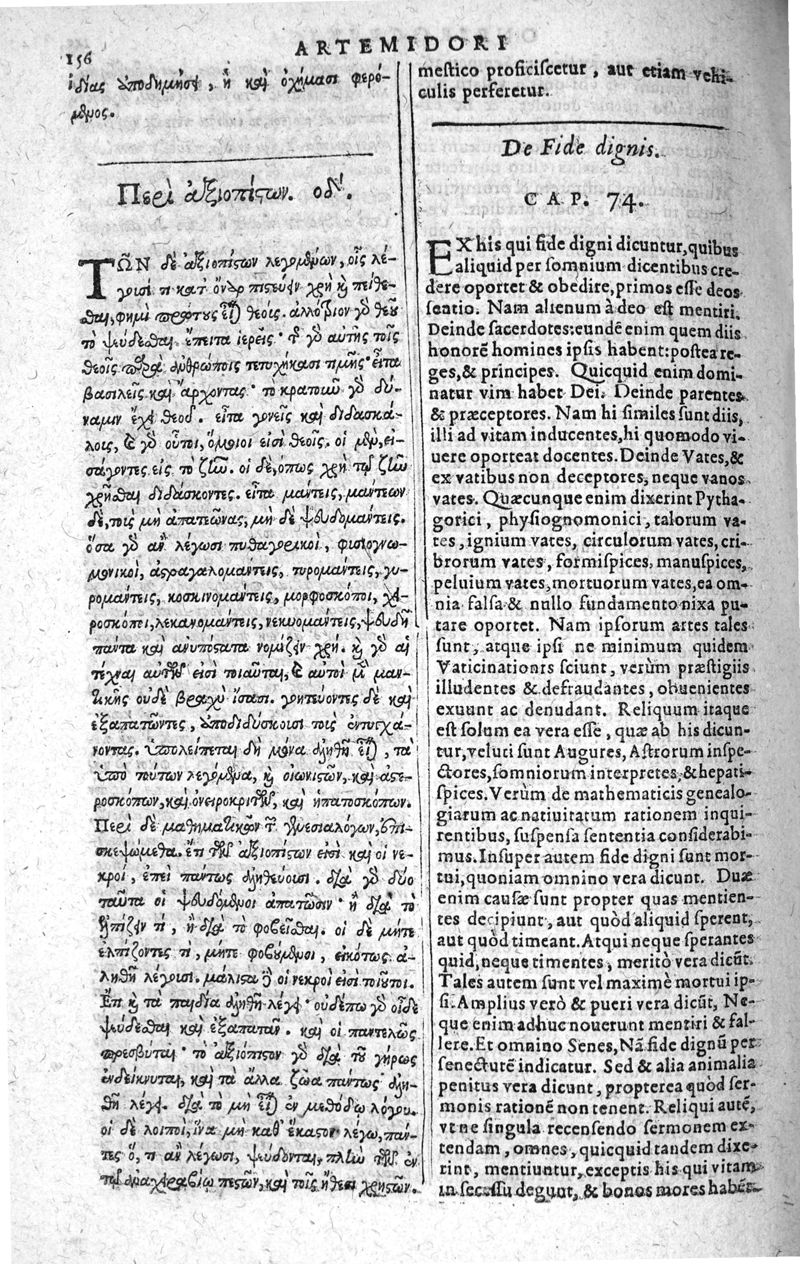 156
ARTEMIDORI
ἰδίας ὑποδημῆσαι, ἢ καὶ ὀχήμασι φερό-
μενος.
Περὶ ἀξιοπίστων. οδʹ.
ΤΩΝ δὲ ἀξιοπίστων λεγομένων, οἷς λέ-
γουσί τι κατ ὄναρ πιστεύειν χρὴ καὶ πείθε-
σθαι, φημὶ πρώτους εἶναι θεούς. ἀλλότριον γὸ θεοῦ
τὸ ψεύδεσθαι. ἔπειτα ἱερεῖς· τῆς γὸ αὐτῆς τοῖς
θεοῖς παρὰ ἀνθρώποις τετυχήκασι τιμῆς· εἶτα
βασιλεῖς καὶ ἄρχοντας· τὸ κρατοῦν γὸ δύ-
ναμιν ἔχει θεοῦ. εἶτα γονεῖς καὶ διδασκά-
λοις, καὶ γὸ οὗτοι, ὅμοιοι εἰσὶ θεοῖς. οἱ μὲν, εἰ-
σάγοντες εἰς τὸ ζῆν. οἱ δὲ, ὅπως χρὴ τῷ ζῆν
χρῆσθαι διδάσκοντες. εἶτα μάντεις, μάντεων
δὲ, τοῖς μὴ ἀπατεῶνας, μὴ δὲ ψευδομάντεις.
ὅσα γὸ ἂν λέγωσι πυθαγορικοὶ, φυσιογνω-
μονικοὶ, ἀστραγαλομάντεις, τυρομάντεις, γυ-
ρομάντεις, κοσκινομάντεις, μορφοσκόποι, χει-
ροσκόποι, λεκανομάντεις, νεκυομάντεις, ψευδῆ
πάντα καὶ ἀνυπόστατα νομίζειν χρή. καὶ γὸ αἱ
τέχναι αὐτῶν εἰσὶ τοιαῦται, καὶ αὐτοὶ μὲν μαν-
τικῆς οὐδὲ βραχὺ ἴσασι. γοητεύοντες δὲ καὶ
ἐξαπατῶντες, ἀποδιδύσκουσι τοὺς ἐντυγχά-
νοντας. ὑπολείπεται δὴ μόνα ἀληθῆ εἶναι, τὰ
ὑπὸ τούτων λεγόμενα, καὶ οἰωνιστῶν, καὶ ἀστε-
ροσκόπων, καὶ ὀνειροκριτῶν, καὶ ἡπατοσκόπων.
Περὶ δὲ μαθηματικῶν τῶν γενεσιαλόγων, ἐπι-
σκεψώμεθα. ἔτι τῶν ἀξιοπίστων εἰσὶ καὶ οἱ νε-
κροὶ, ἐπεὶ πάντως ἀληθεύουσι. διὰ γὸ δύο
ταῦτα οἱ ψευδόμενοι ἀπατῶσιν· ἢ διὰ τὸ
ἐλπίζειν τι, ἢ διὰ τὸ φοβεῖσθαι. οἱ δὲ μήτε
ἐλπίζοντές τι, μήτε φοβούμενοι, εἰκότως ἀ-
ληθῆ λέγουσι. μάλιστα δὲ οἱ νεκροὶ εἰσὶ τοιοῦτοι.
Ἔτι καὶ τὰ παιδία ἀληθῆ λέγει· οὐδέπω γὸ οἶδε
ψεύδεσθαι καὶ ἐξαπατᾶν. καὶ οἱ παντελῶς
πρεσβῦται· τὸ ἀξιόπιστον γὸ διὰ τοῦ γήρως
ἐνδείκνυται, καὶ τὰ ἄλλα ζῶα πάντως ἀλη-
θῆ λέγει. διὰ τὸ μὴ εἶναι ἐν μεθόδῳ λόγου.
οἱ δὲ λοιποὶ, ἵνα μὴ καθ' ἕκαστον λέγω, πάν-
τες ὅ, τι ἂν λέγωσι, ψεύδονται, πλὴν τῶν ἐν
καὶ τοῖς ἤθεσι χρηστῶν.
mestico proficiscetur, aut etiam vehi-
culis perferetur.
De Fide dignis.
CAP. 74.
EX his qui fide digni dicuntur, quibus
aliquid per somnium dicentibus cre-
dere oportet & obedire, primos esse deos
sentio. Nam alienum à deo est mentiri.
Deinde sacerdotes: eundē enim quem diis
honorē homines ipsis habent: postea re-
ges, & principes. Quicquid enim domi-
natur vim habet Dei. Deinde parentes
& præceptores. Nam hi similes sunt diis,
illi ad vitam inducentes, hi quomodo vi-
uere oporteat docentes. Deinde Vates, &
ex vatibus non deceptores, neque vanos
vates. Quæcunque enim dixerint Pytha-
gorici, physiognomonici, talorum va-
tes, ignium vates, circulorum vates, cri-
brorum vates, formispices, manuspices,
peluium vates, mortuorum vates, ea om-
nia falsa & nullo fundamento nixa pu-
tare oportet. Nam ipsorum artes tales
sunt, atque ipsi ne minimum quidem
Vaticinationis sciunt, verùm præstigiis
illudentes & defraudantes, obuenientes
exuunt ac denudant. Reliquum itaque
est solum ea vera esse, quæ ab his dicun-
tur, veluti sunt Augures, Astrorum inspe-
ctores, somniorum interpretes, & hepati-
spices. Verùm de mathematicis genealo-
giarum ac natiuitatum rationem inqui-
rentibus, suspensa sententia considerabi-
mus. Insuper autem fide digni sunt mor-
tui, quoniam omnino vera dicunt. Duæ
enim causæ sunt propter quas mentien-
tes decipiunt, aut quòd aliquid sperent,
aut quòd timeant. Atqui neque sperantes
quid, neque timentes, meritò vera dicūt.
Tales autem sunt vel maximè mortui ip-
si. Amplius verò & pueri vera dicūt, Ne-
que enim adhuc nouerunt mentiri & fal-
lere. Et omnino Senes, Nā fide dignū per
senectutē indicatur. Sed & alia animalia
penitus vera dicunt, propterea quòd ser-
monis rationē non tenent. Reliqui autē,
vt ne singula recensendo sermonem ex-
tendam, omnes, quicquid tandem dixe-
rint, mentiuntur, exceptis his qui vitam
in secessu degunt, & bonos mores habēt.